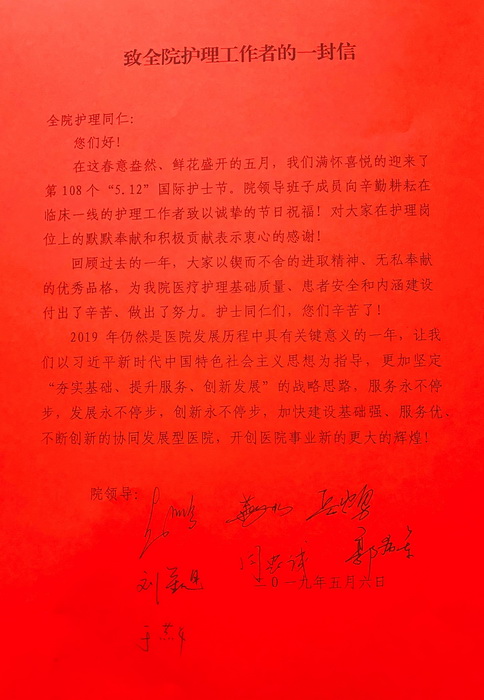 致全院护理工作者的一封信
全院护理同仁:
您们好!
在这春意盎然、鲜花盛开的五月,我们满怀喜悦的迎来了
第108个“5.12”国际护士节。院领导班子成员向辛勤耕耘在
临床一线的护理工作者致以诚挚的节日祝福!对大家在护理岗
位上的默默奉献和积极贡献表示衷心的感谢!
回顾过去的一年,大家以锲而不舍的进取精神、无私奉献
的优秀品格,为我院医疗护理基础质量、患者安全和内涵建设
付出了辛苦、做出了努力。护士同仁们,您们辛苦了!
2019年仍然是医院发展历程中具有关键意义的一年,让我
们以习近平新时代中国特色社会主义思想为指导,更加坚定
“夯实基础、提升服务、创新发展”的战略思路,服务永不停
步,发展永不停步,创新永不停步,加快建设基础强、服务优、
不断创新的协同发展型医院,开创医院事业新的更大的辉煌!
院领导:
二〇一九年五月六日